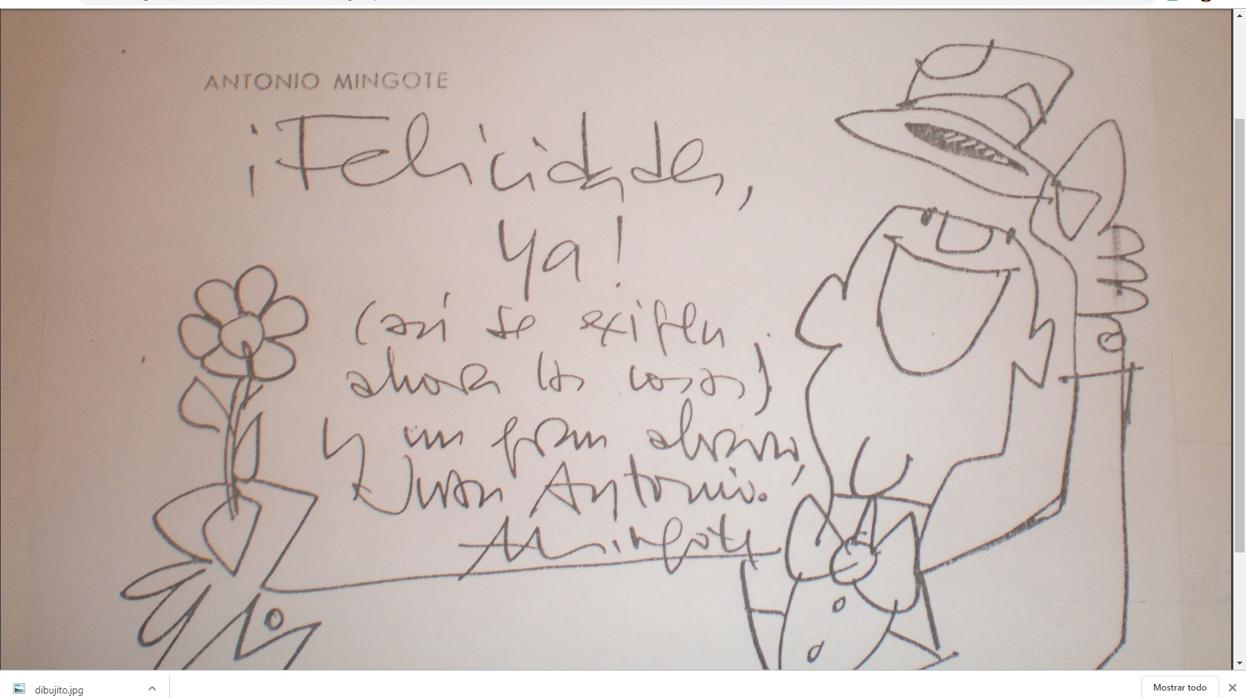 ANTONIO MINGOTE
¡Felicidades,
ya!
(así se exigen
ahora las cosas)
y un gran abrazo,
Juan Antonio.
Mingote
dibujito.jpg
Mostrar todo